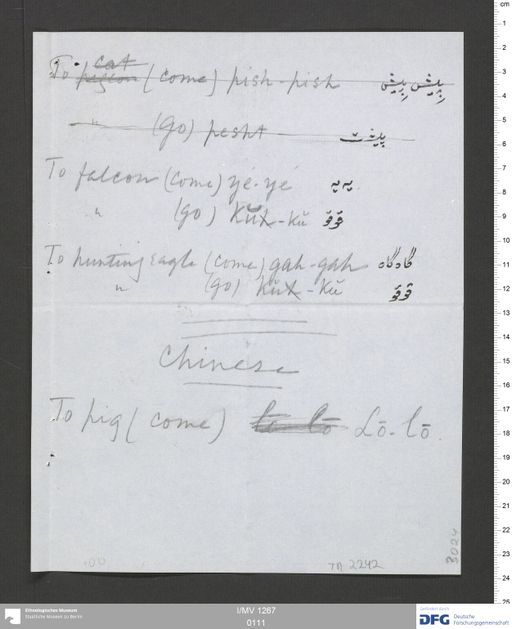 cat
To pigeon (come) pish-pish پِیش پِیش
" (go) pesht پیشت
To falcon (come) yé-yé یه یه
" (go) kŭ-kŭ قو قو
To hunting eagle (come) gah-gah گاه گاه
" (go) kŭ-kŭ قو قو
Chinese
To pig (come) Lō-lō.
TA 2242
3024
Ethnologisches Museum
Staatliche Museen zu Berlin
I/MV 1267
0111
Gefördert durch
DFG Deutsche
Forschungsgemeinschaft
cm
1
2
3
4
5
6
7
8
9
10
11
12
13
14
15
16
17
18
19
20
21
22
23
24
25